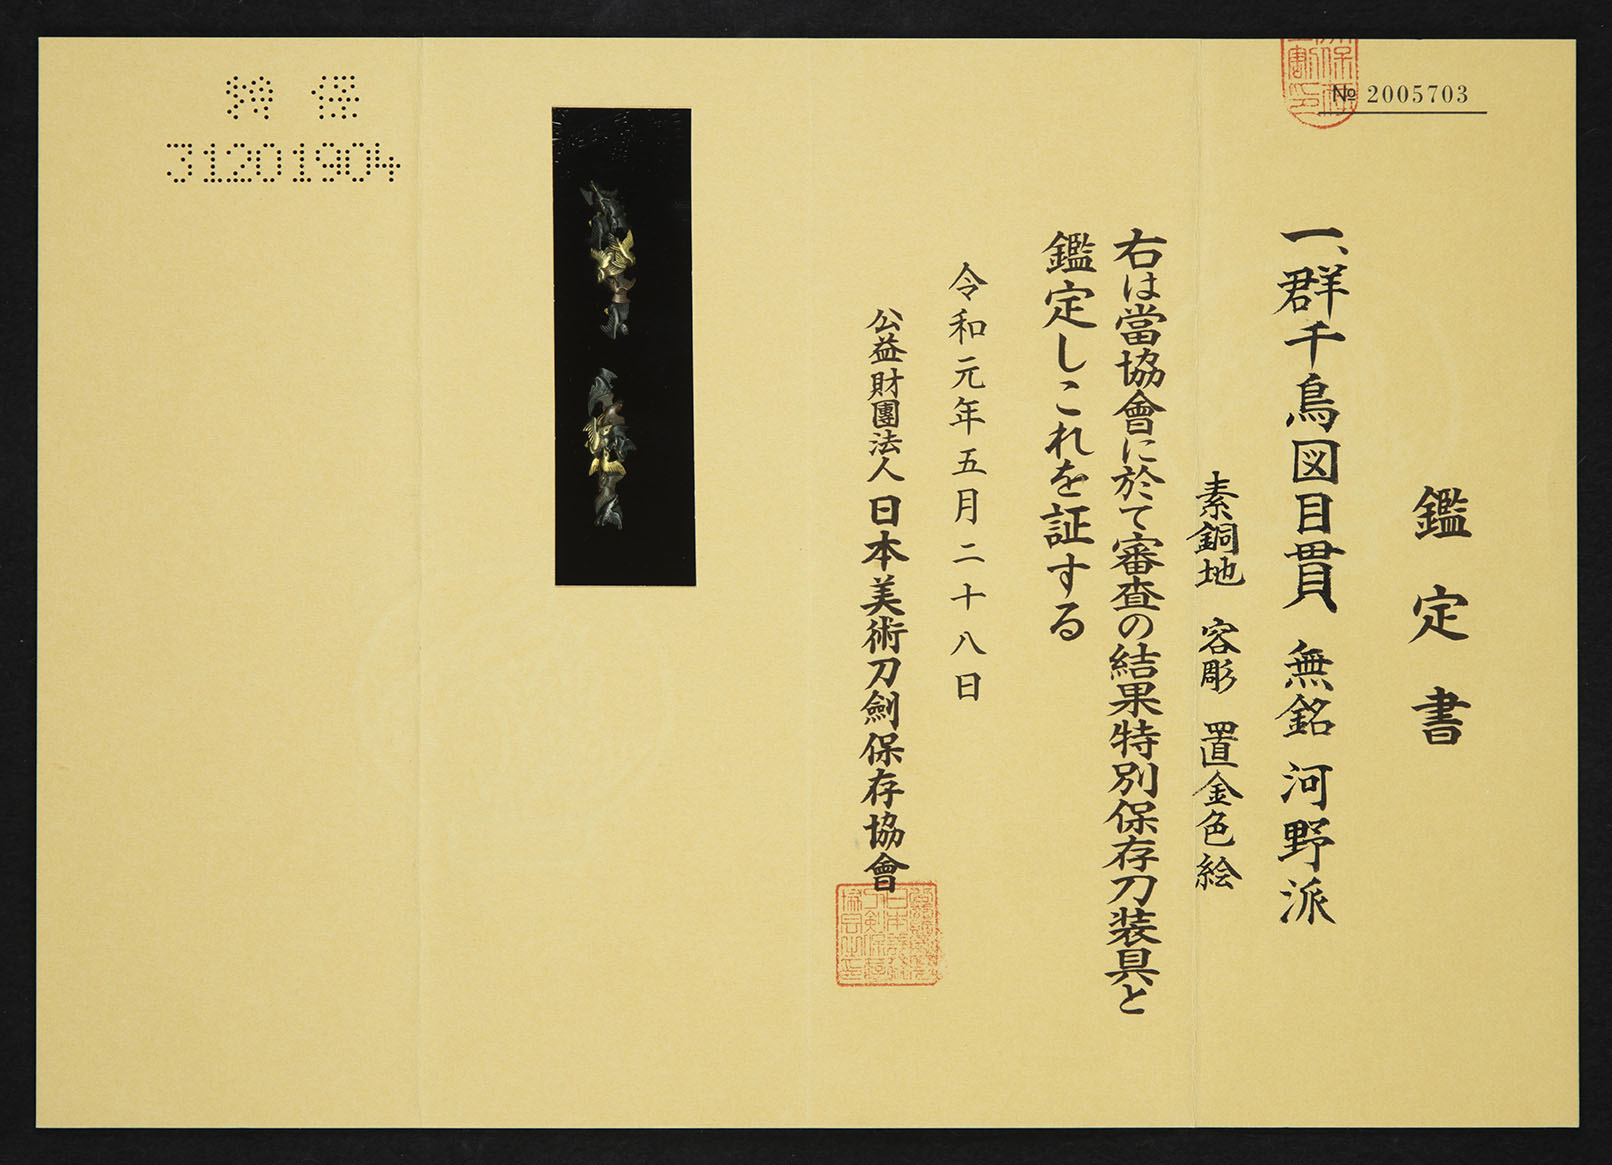 № 2005703
鑑定書
一、群千鳥図目貫 無銘 河野派
素銅地 容彫 置金色絵
右は當協會に於て審査の結果特別保存刀装具と
鑑定しこれを証する
令和元年五月二十八日
公益財團法人 日本美術刀劍保存協會
特保
31201904